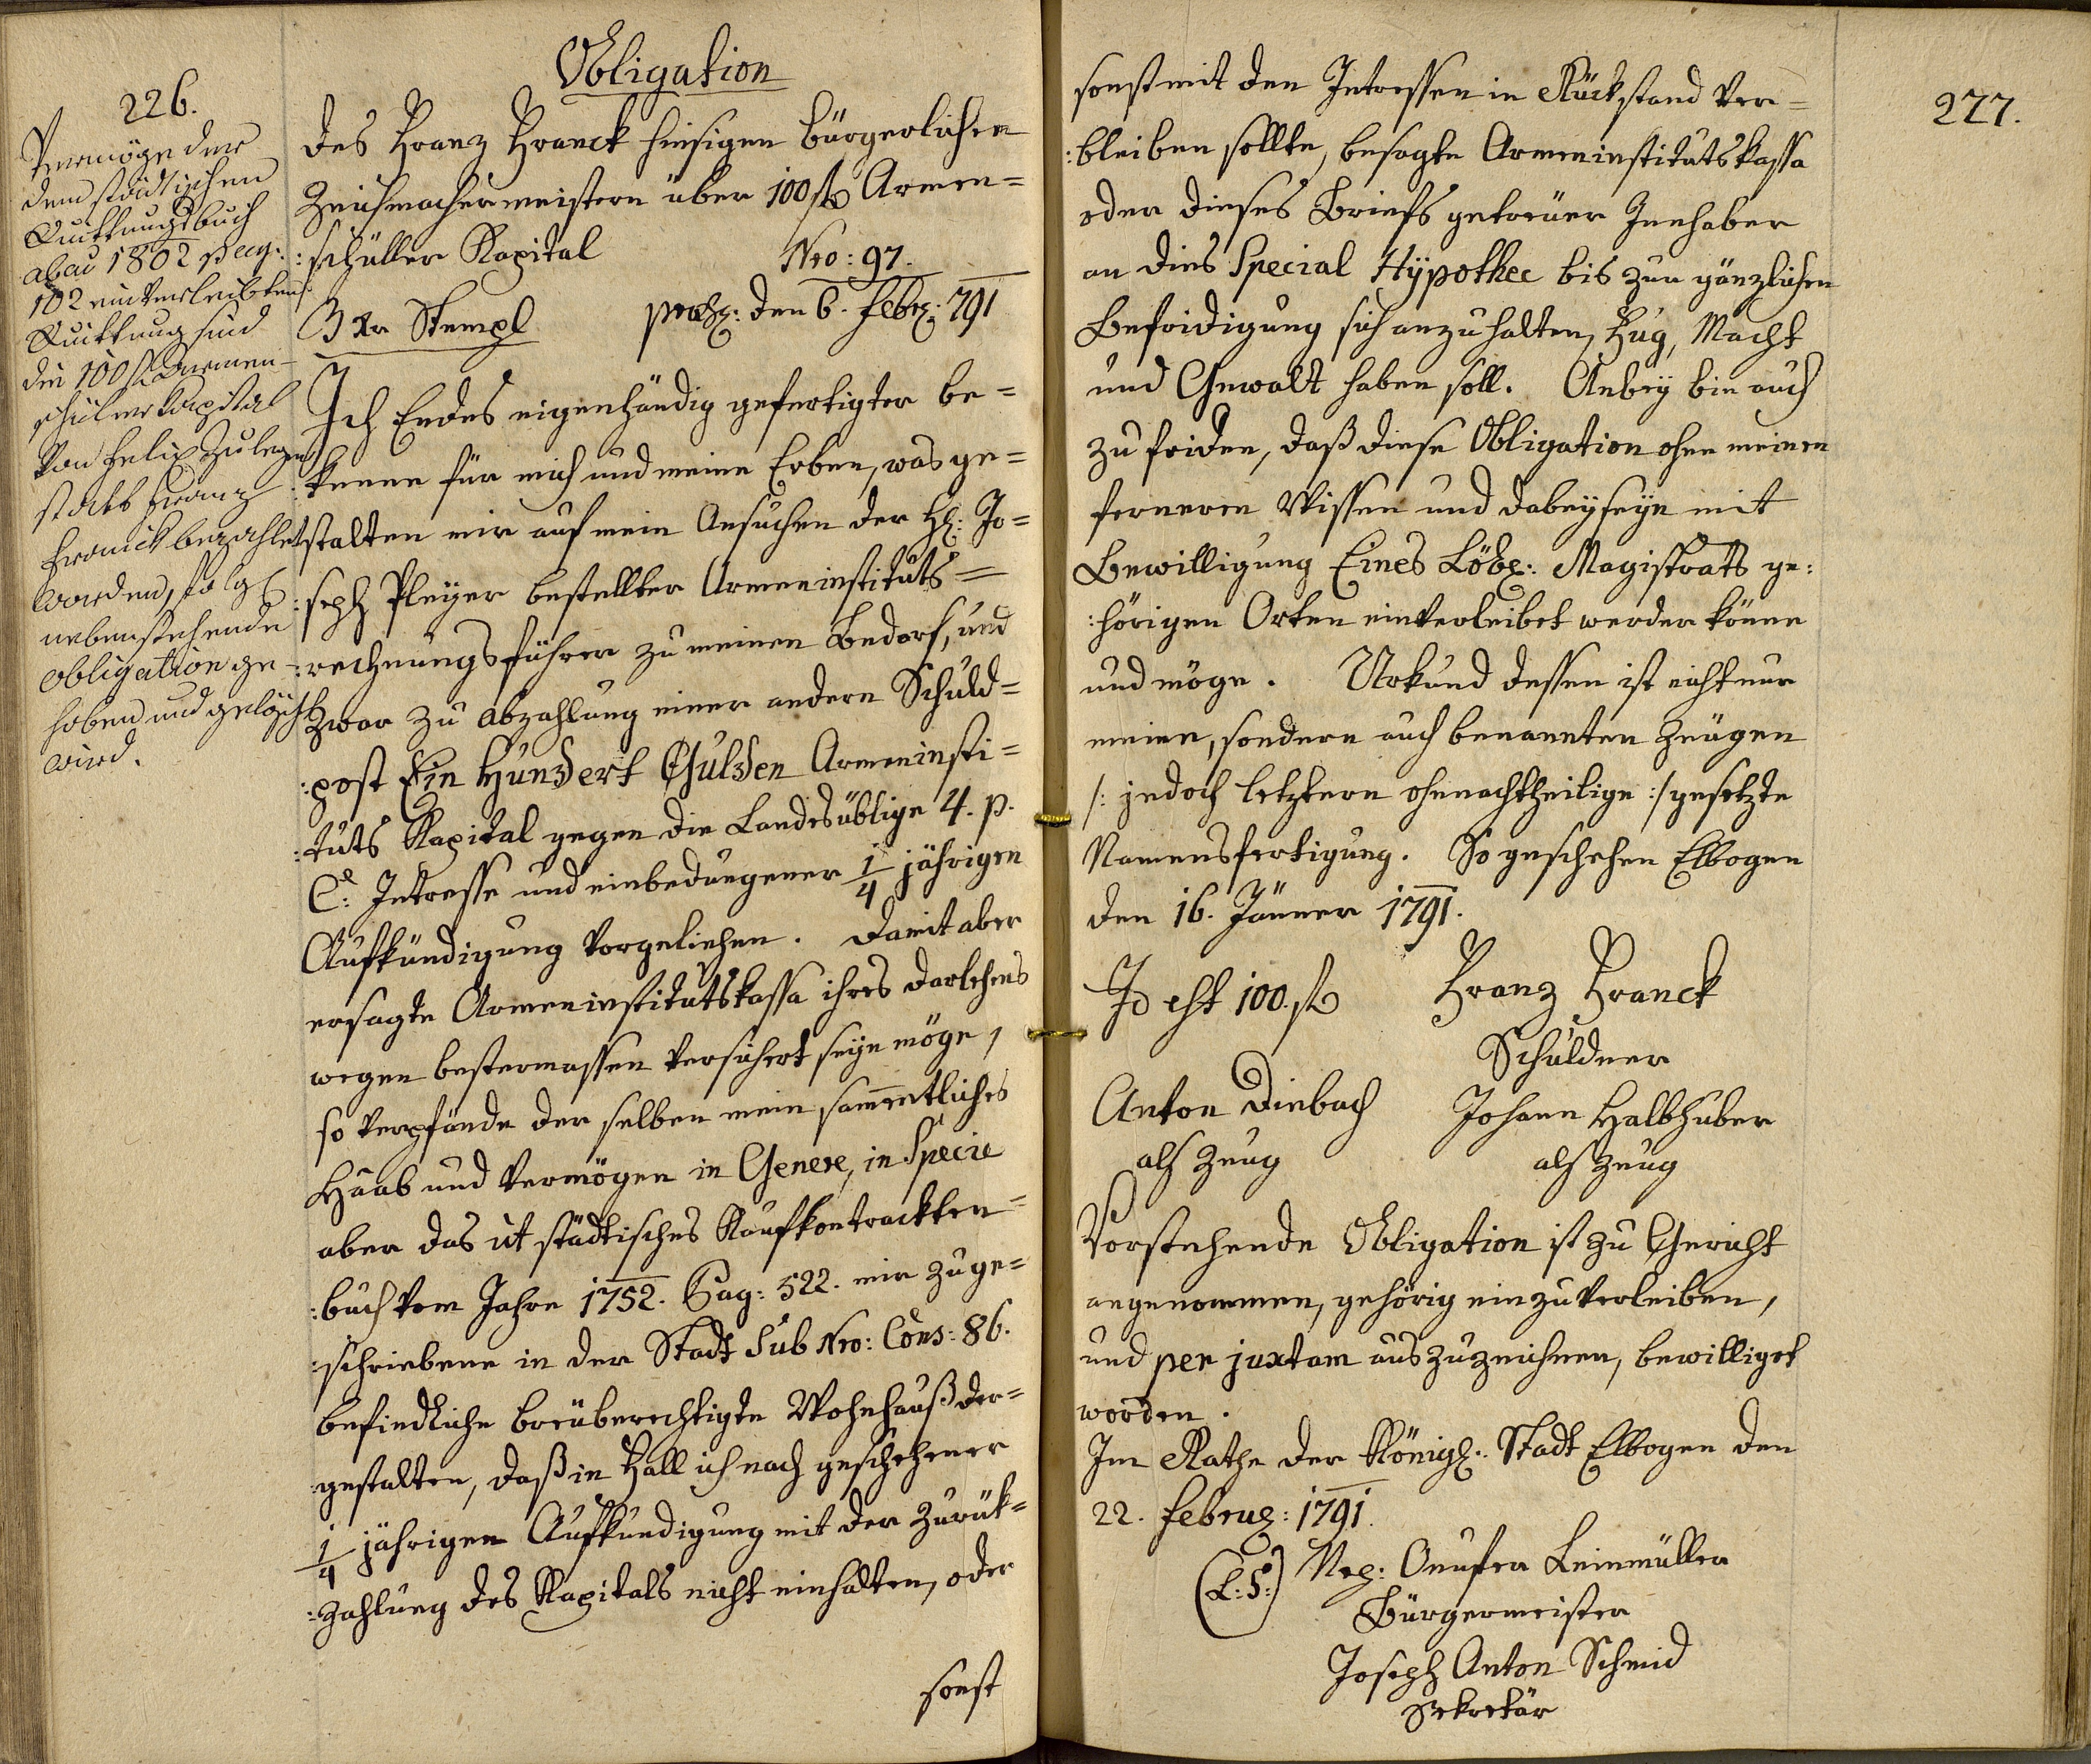 226.
Vermög der
dem städtischen
Quittungsbuch
ab ao 1802 pag.
102 einverleibten
Quittung sind
die 100 fl Armen-
schüler Kapital
von Felix Zuleger
statt Franz
Franck bezahlet
worden, folgl
nebenstehende
obligation ge-
hoben und gelöscht
wird.
Obligation
des Franz Franck hiesigen bürgerlichen
Zeuchmachermeistern über 100 fl Armen=
:schüller Kapital Nro: 97.
3 Xr Stempl praes: den 6. Febr: 791
Ich Endes eigenhändig gefertigter be=
:kenne für mich und meine Erben, was ge=
:stalten mir auf mein Ansuchen der H: Jo=
:seph Pleyer bestellter Armeninstituts=
:rechnungsführer zu meinen Bedarf, und
zwar zu abzahlung einer andern Schuld=
:post Ein Hundert Gulden Armeninsti=
:tuts Kapital gegen die Landesüblige 4. p.
C: Intresse und einbedungener 1/4 jährigen
Aufkündigung vorgeliehen. Damit aber
ersagte Armeninstitutskassa ihres darlehens
wegen bestermassen versichert seÿn möge,
so verpfände der selben mein sammentliches
Haab und Vermögen in Genere, in Specie
aber das ut städtisches Kaufkontrackten=
:buch vom Jahre 1752. Pag: 522. mir zuge=
:schriebene in der Stadt Sub Nro: Cons: 86.
befindliche breüberechtigte Wohnhauß der=
:gestalten, daß in Fall ich nach geschehener
1/4 jährigen Aufkündigung mit der Zurük=
:zahlung des Kapitals nicht einhalten, oder
sonst
277.
sonst mit den Intressen in Rückstand ver=
:bleiben sollte, besagte Armeninstitutskassa
oder dieses Briefs getreüer Innhaber
an dies Special Hÿpothec bis zur gänzlichen
Befridigung sich anzuhalten, Fug, Macht
und Gewalt haben soll. Anbeÿ bin auch
zu friden, daß diese Obligation ohne meinen
ferneren Wissen und dabeÿseÿn mit
Bewilligung Eines Löbl: Magistrats ge:
:hörigen Orten einverleibet werden könne
und möge. Urkund dessen ist nicht nur
meine, sondern auch benannten Zeügen
/: jedoch letztern ohnnachtheilige :/ gesetzte
Namensfertigung. So geschehen Elbogen
den 16. Jänner 1791.
Id est 100. fl Franz Franck
Schuldner
Anton Diebach Johann Halbhuber
als Zeug als Zeug
Vorstehende Obligation ist zu Gericht
angenommen, gehörig einzuverleiben,
und per juxtam auszuzeichnen, bewilliget
worden.
Im Rathe der Königl: Stadt Elbogen den
22. Februar: 1791.
(L:S:) Onufer Leinmüller
Bürgermeister
Joseph Anton Schmid
Sekretär